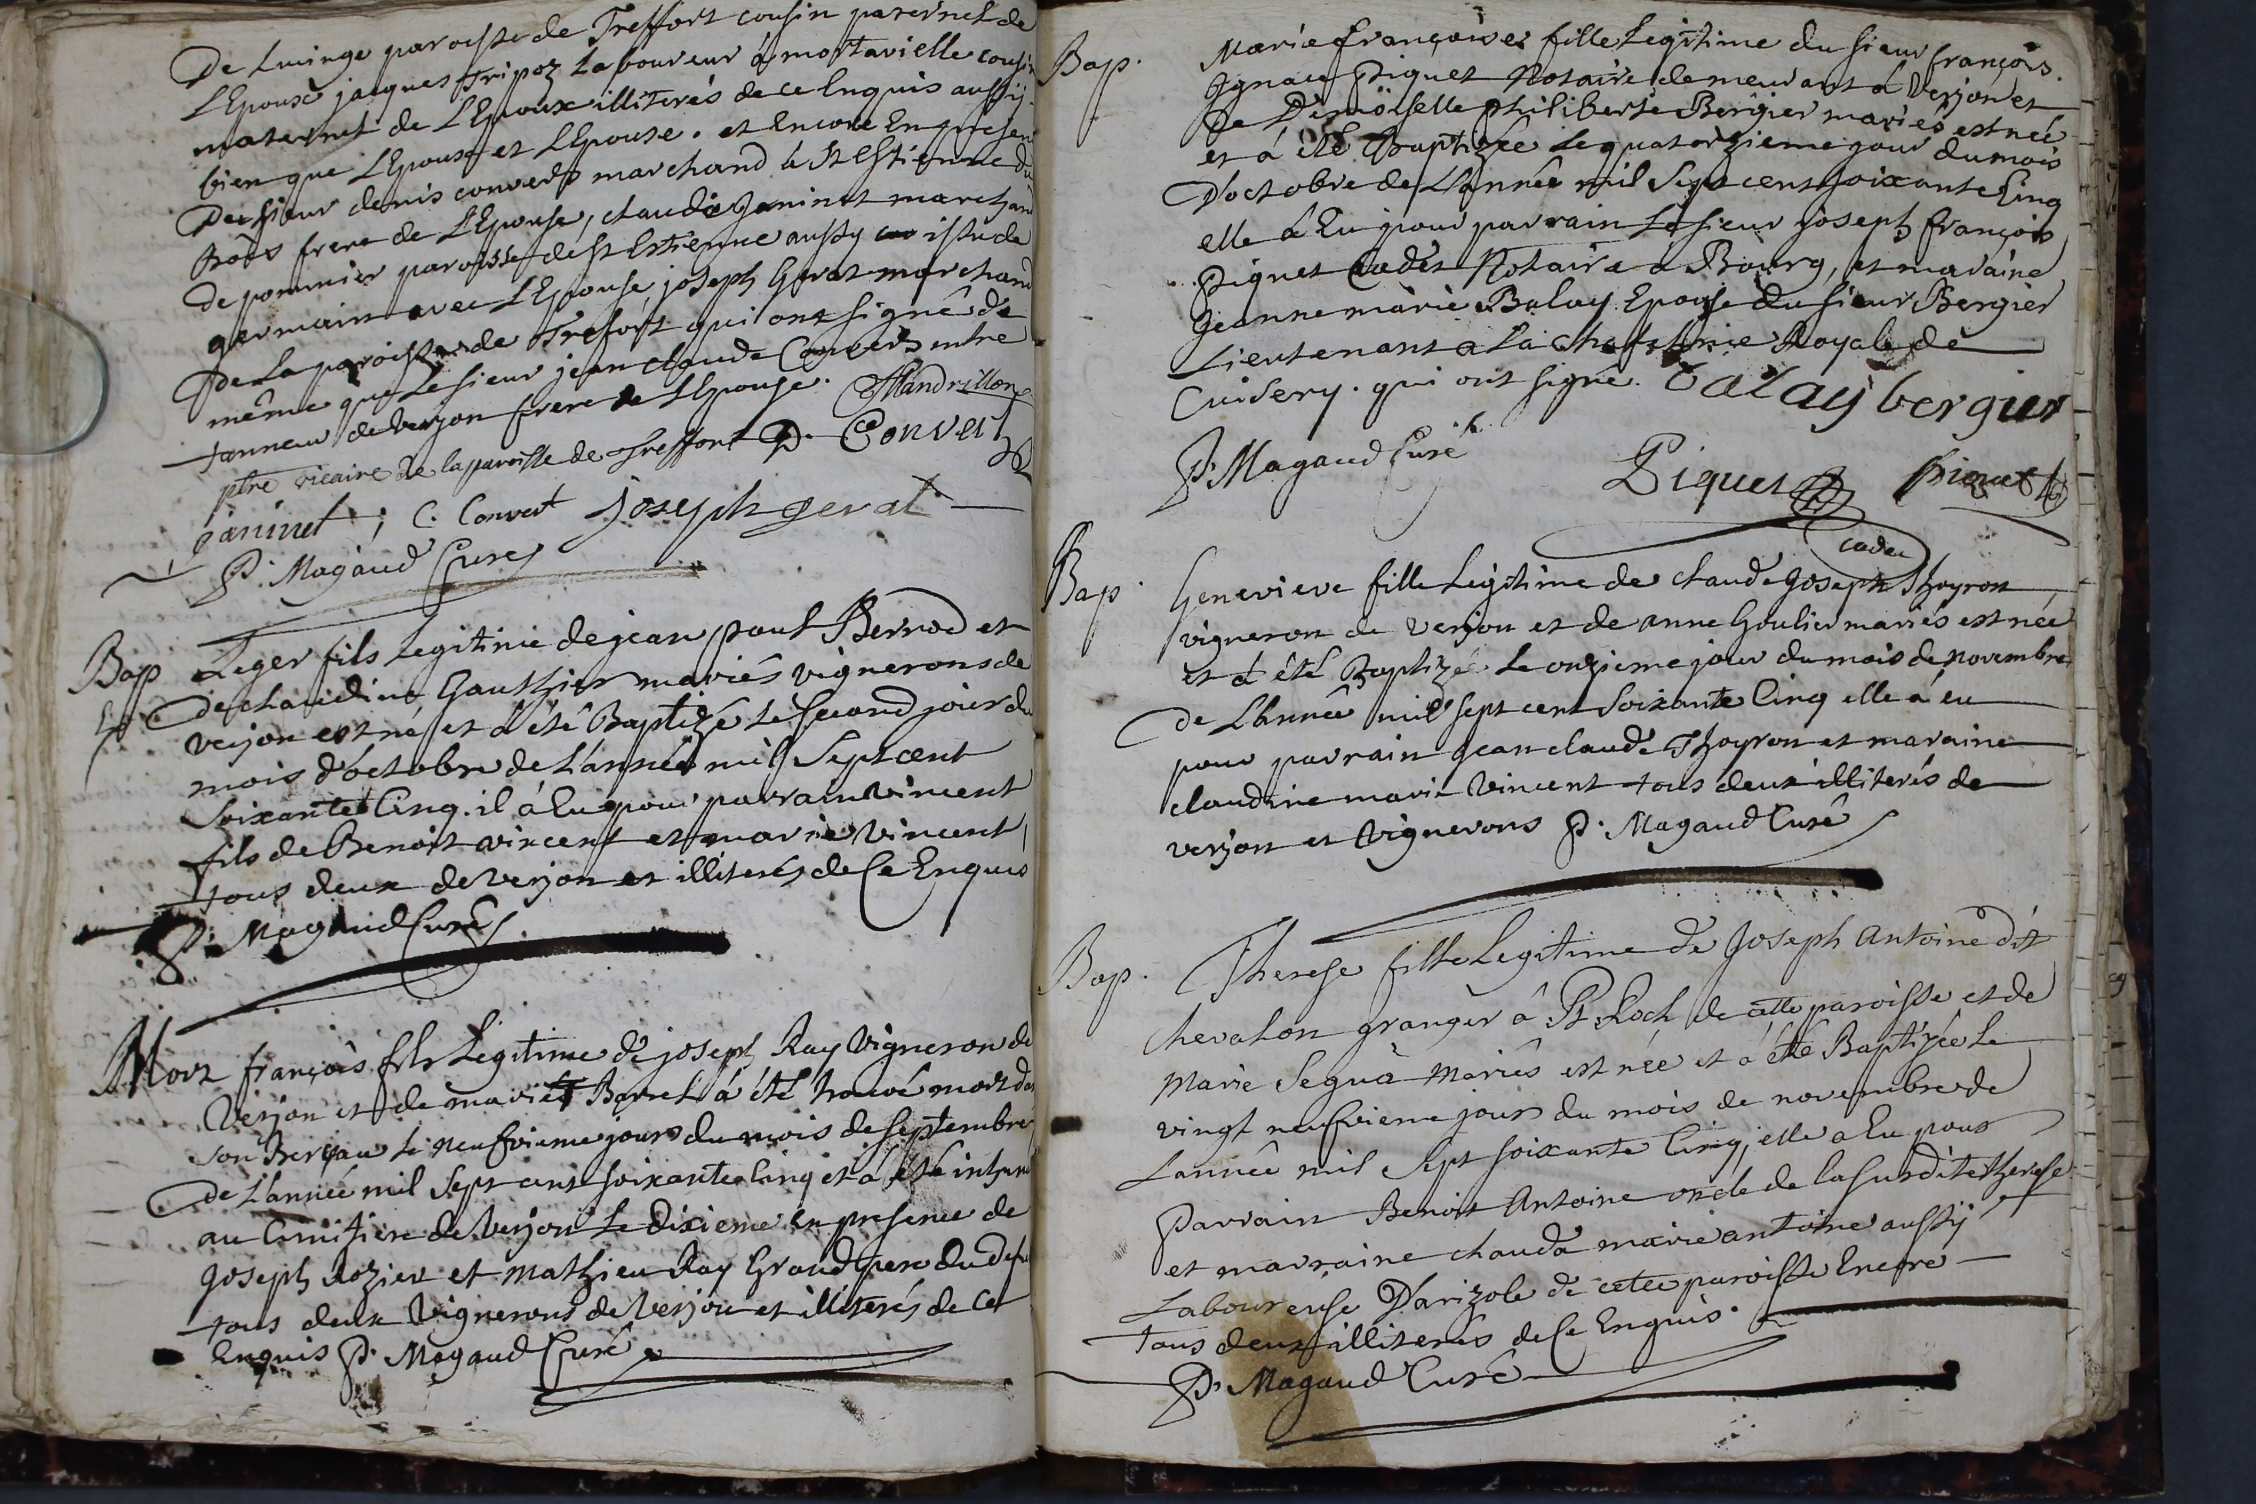 De Lminge paroisse de Treffort cousin paternel de
L'Epouse jacques Tripoz Laboureur à mortarielle cousin
maternel de L'Epoux illiterés de ce Enquis aussy
bien que L'Epoux et L'Epouse. et Encore En presence
De sieur denis convers marchand à St Estienne du
Bois frere de L'Epouse, claude Janinet marchand
de pommier paroisse de St Estienne aussy issu de
germain avec L'Epouse, joseph Gerat marchand
De La paroisse de Trefort qui ont signé de
même que Le sieur jean claude Convers entre
tanneur de Verjon frere de L'Epouse. Mandrillon
ptre vicaire de la paroisse de Treffort D. Convert
janinet, C. Convert joseph gerat
P. Magaud Curé
Bap Leger fils Legitime de jean paul Berrod et
de claudine Gauthier mariés vignerons de
verjon est né et à été Baptizé le second jour du
mois d'octobre de L'année mil Sept cent
soixante Cinq. il à Eu pour parrain vincent
fils de Benoit vincent et marie vincent,
tous deux de Verjon et illiterés de Ce Enquis
P. Magaud Curé
Mort françois fils Legitime de joseph Ray Vigneron de
Verjon et de marie Borrel à été trouvé mort dans
son Berçau le neufvieme jours du mois de septembre
de L'année mil Sept cent soixante Cinq et à été inhumé
au Cimitiere de Verjon Le dixieme En presence de
Joseph Rozier et mathieu Ray Grand pere du defu
tous deux Vignerons de Verjon et illiterés de Ce
Enquis P. Magaud Curé
Bap. Marie françoise fille Legitime du sieur françois
Ignace Piquet Notaire demeurant à Verjon et
de Demoiselle philiberte Bergier mariés est née
et à été Baptizée le quatorzieme jour du mois
D'octobre de L'année mil Sept cent soixante Cinq
elle à Eu pour parrain Le sieur joseph françois
Piquet Cadet Notaire à Bourg, et maraine
Jeanne marie Balay Epouse du sieur Bergier
Lieutenant à La chatelnie Royale de
Cuisery. qui ont signé. Balay bergier
P. Magaud Curé Piquet Piquet
cadet
Bap. Genevieve fille Legitime de claude Joseph Thoyron
vigneron de Verjon et de anne Goulier mariés est née
et à été Baptizée Le onzieme jour du mois de novembre
de L'année mil sept cent soixante Cinq elle à eu
pour parrain jean claude Thoyron et maraine
claudine marie Vincent tous deux illiterés de
verjon et Vignerons P. Magaud Curé
Bap. Therese fille Legitime de Joseph Antoine dit
chevalon granger à St Roch de cette paroisse et de
Marie Seguà Mariés est née et à été Baptizée Le
vingt neufvieme jour du mois de novembre de
L'année mil Sept soixante Cinq, elle a Eu pour
parrain Benoit Antoine oncle de la susdite therese
et marraine claude marie antoine aussy
Laboureuse D'arizole de cette paroisse Encore
tous deux illiterés de Ce Enquis.
P. Magaud Curé